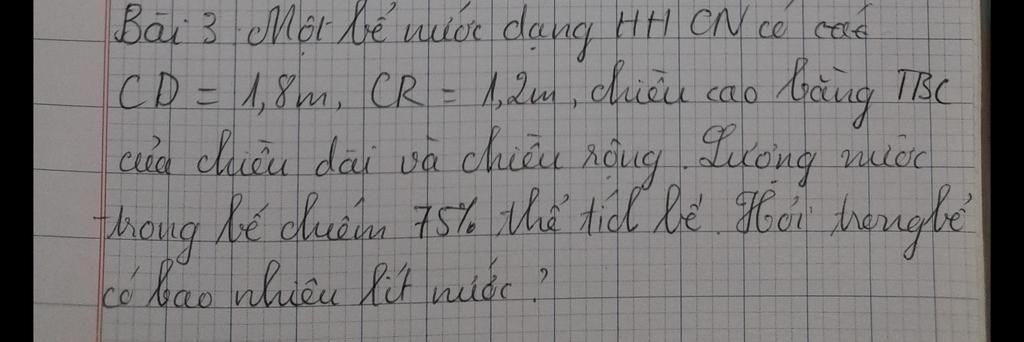 Bài 3. Một bể nước dạng HHCN có các
CD = 1,8m, CR = 1,2m, chiều cao bằng TBC
của chiều dài và chiều rộng. Lượng nước
trong bể chiếm 75% thể tích bể. Hỏi trong bể
có bao nhiêu lít nước?